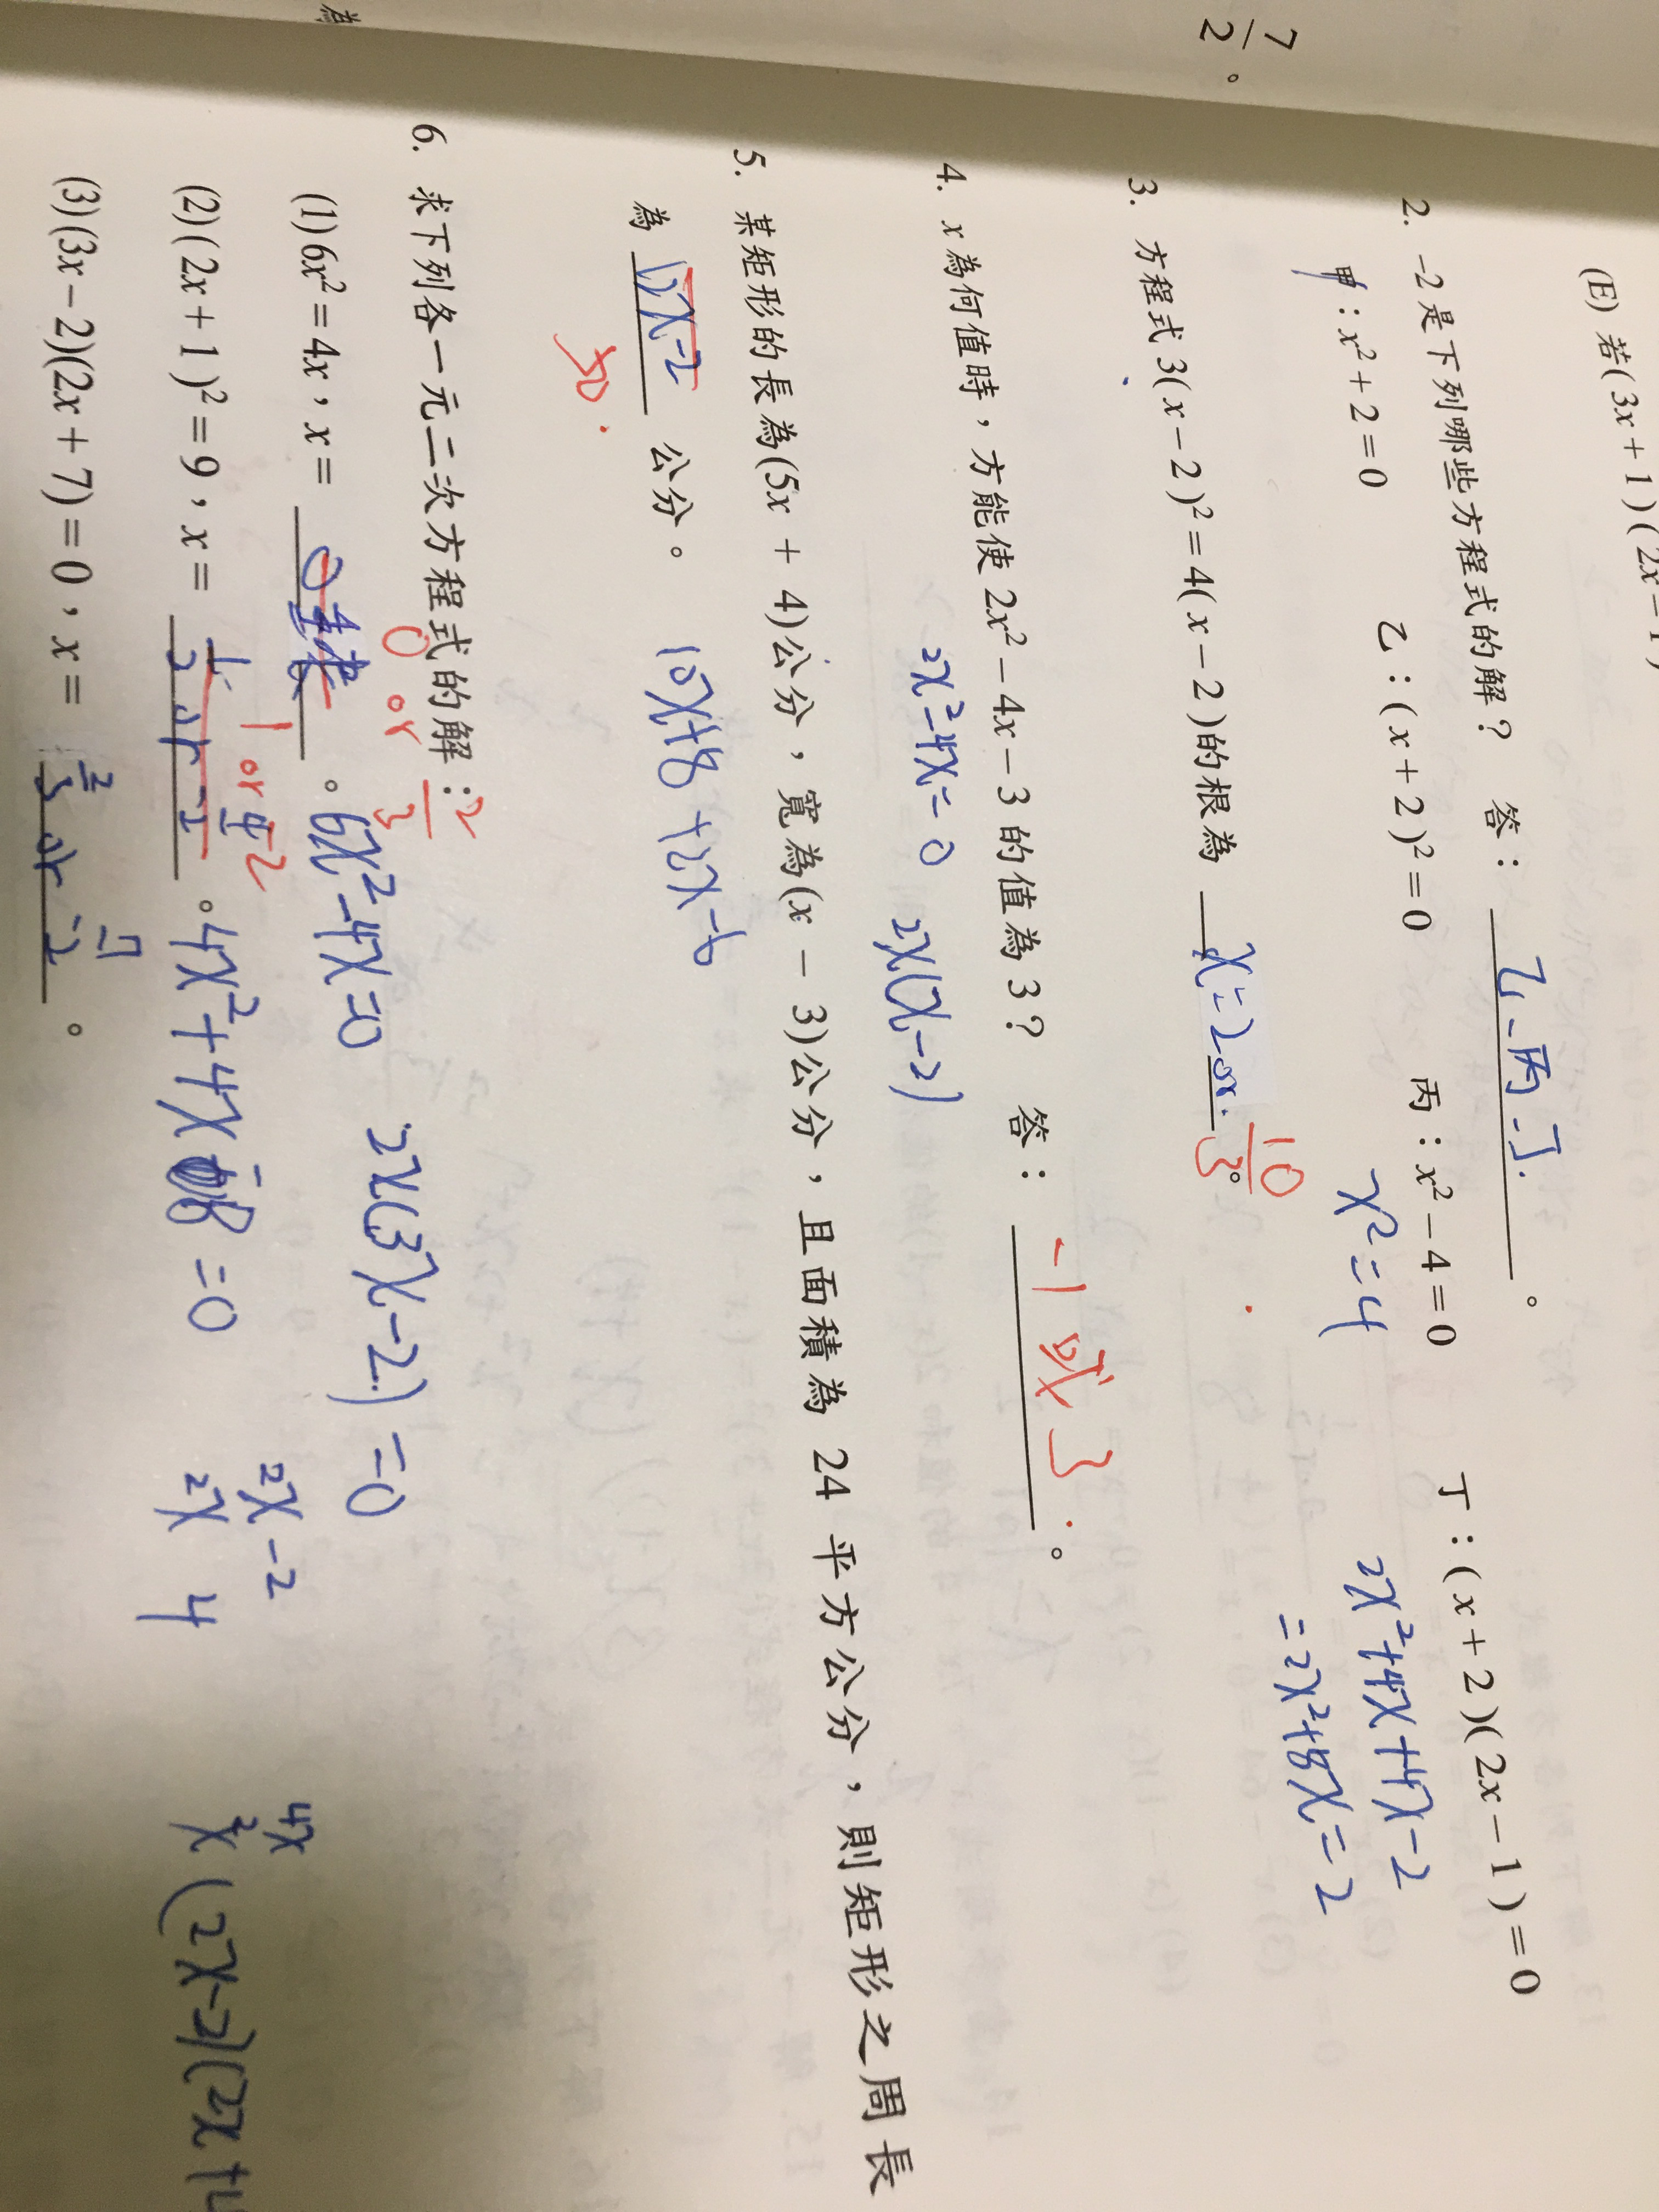 7/2。
(E) 若(3x+1)(2x-1)
2. -2是下列哪些方程式的解? 答: 乙、丙、丁.。
甲:x²+2=0 乙:(x+2)²=0 丙:x²-4=0 丁:(x+2)(2x-1)=0
x²=4
2x²+4x+4x-2
=2x²+8x=2
3. 方程式 3(x-2)²=4(x-2)的根為 x=2 or 10/3。
4. x 為何值時,方能使 2x²-4x-3 的值為 3? 答: -1 或 3。
2x²-4x=0 2x(x-2)
5. 某矩形的長為(5x+4)公分,寬為(x-3)公分,且面積為 24 平方公分,則矩形之周長
為 12x-2 公分。 10x+8+2x-6
50.
6. 求下列各一元二次方程式的解:
0 or 2/3
(1) 6x²=4x,x= 0 。6x²-4x=0 2x(3x-2)=0
1 or -2
(2) (2x+1)²=9,x= or 。4x²+4x-8=0
2x -2
2x 4
4x
(2x-2)(2x+4
(3) (3x-2)(2x+7)=0,x= 2/3 or -7/2。
為